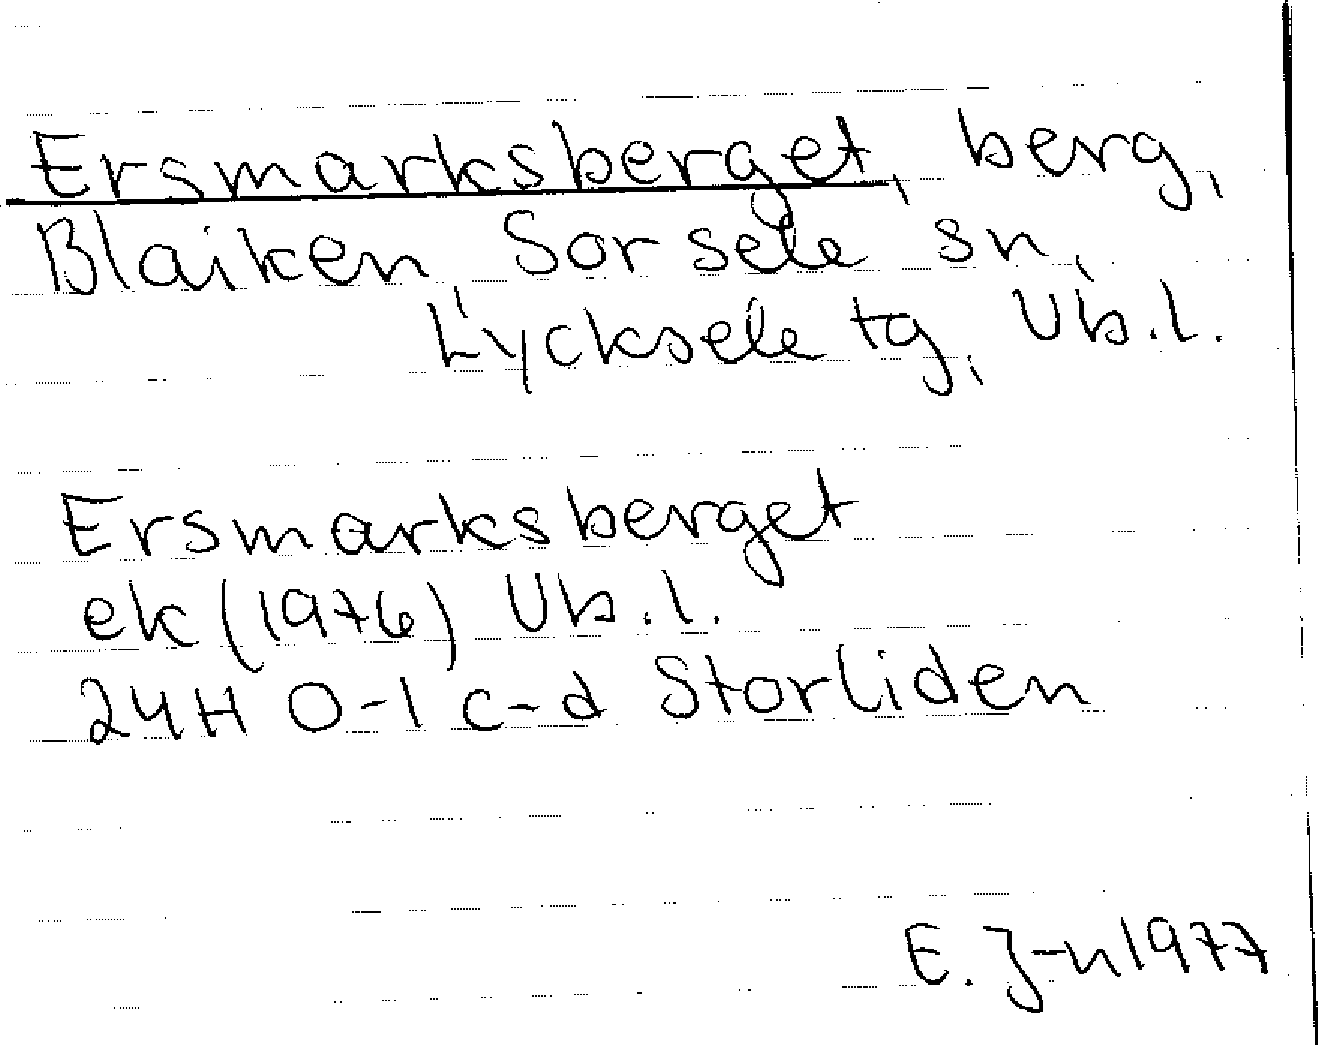 Ersmarksberget, berg,
Blaiken, Sorsele sn,
Lycksele tg, Vb.l.
Ersmarksberget
ek (1976) Vb.l.
24H 0-1 c-d Storliden
E. J-n 1977